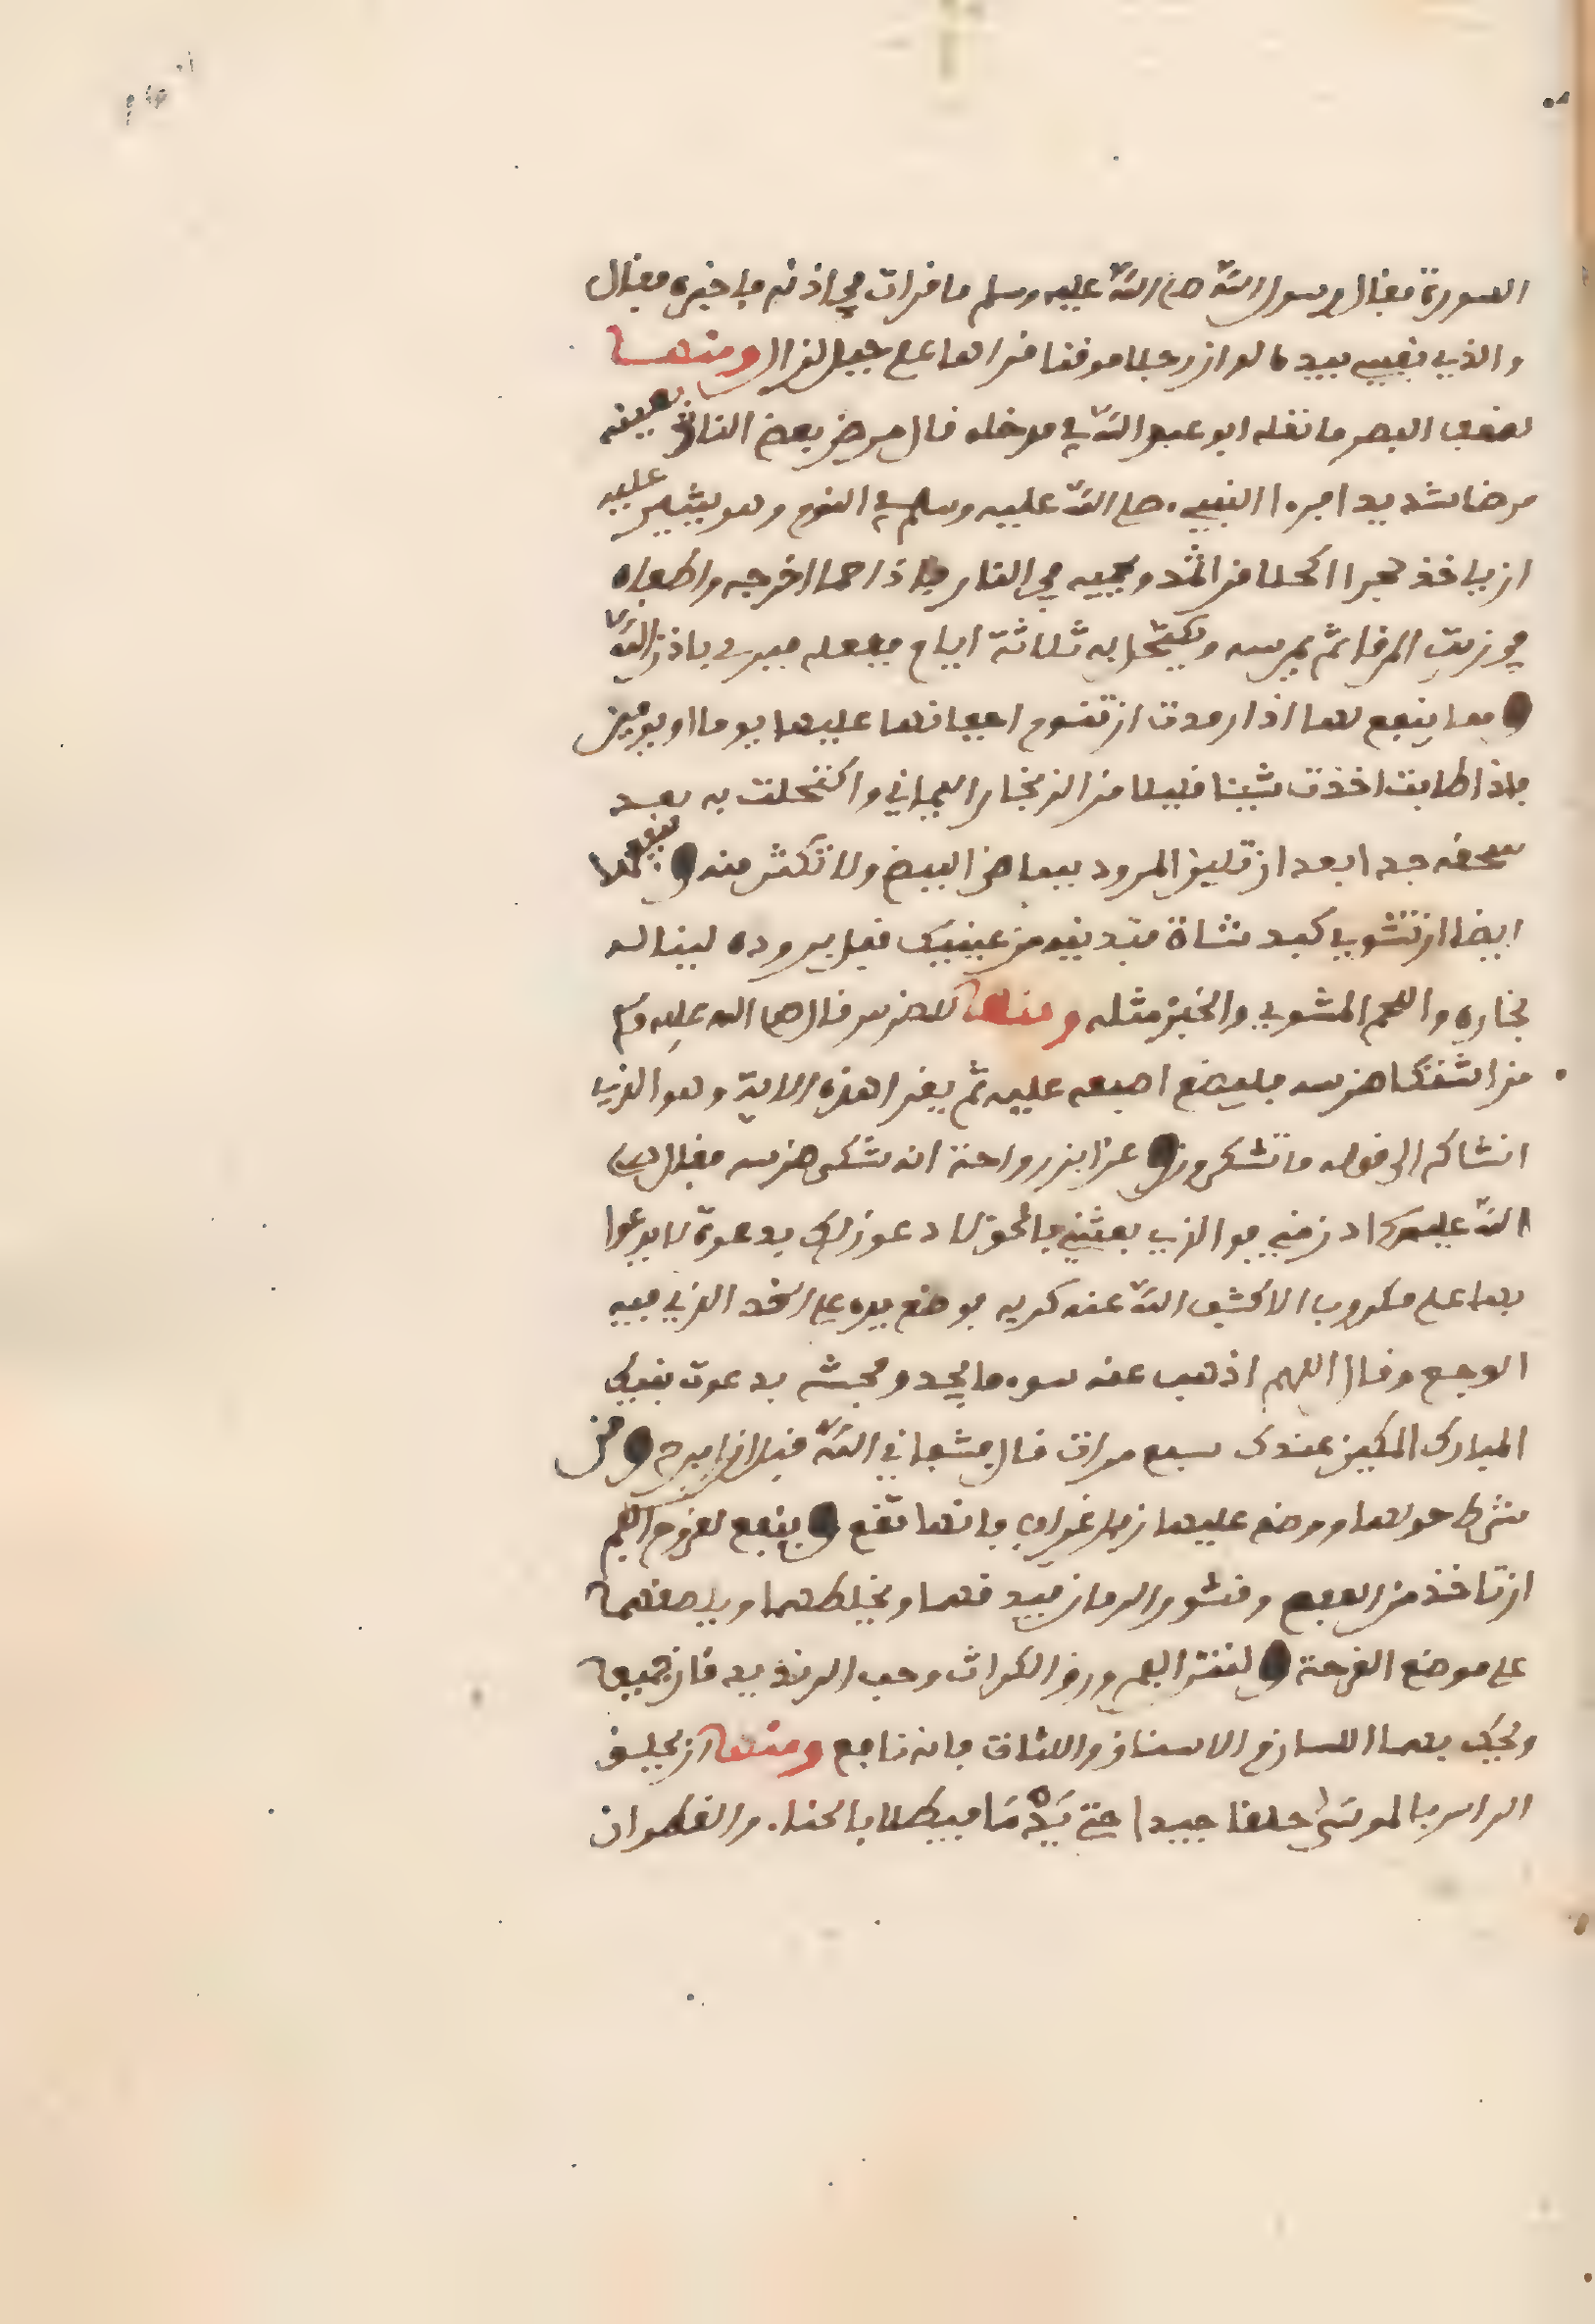 السورة فقال رسول الله صلى الله عليه وسلم ما قرات في اذنه فاخبره فقال
والذي نفسي بيده لو ان رجلا موقنا قراها على جبل لزال ومنها
لضعف البصر ما نقله ابو عبد الله في مدخله قال مرض بعض الناس بعينه
مرضا شديدا فرءا النبيء صلى الله عليه وسلم في النوم وهو يشير عليه
ان ياخذ حجرا اكحلا من اثمد ويحميه في النار فاذا حما اخرجه واطفاه
في زيت المرقا ثم يمرسه ويكتحل به ثلاثة ايام ففعله فبرى باذن الله
ومما ينفع لها اذا رمدت ان تقوم اجفانها عليها يوما او يومين
فاذا طابت اخذت شيئا قليلا من الزنجار العماني واكتحلت به بعد
سحقه جدا بعد ان تليق المرود ببياض البيض ولا تكثر منه وينفعها
ايضا ان تشوي كبد شاة فتدنيه من عينيك قبل بروده لينا له
بخاره واللحم المشوي والخبز مثله ومنها للضرس قال صلى الله عليه وسلم
من اشتكا ضرسه فليضع اصبعه عليه ثم يقرا هذه الاية وهو الذي
انشاكم الى قوله ما تشكرون وعن ابن رواحة انه شكى ضرسه فقال صلى
الله عليه وسلم ادن مني فو الذي بعثني بالحق لادعون لك بدعوة لا يدعوا
بها على مكروب الا كشف الله عنه كربه فوضع يده على الخد الذي فيه
الوجع وقال اللهم اذهب عنه سوء ما يجد وفحشه بدعوت نبيك
المبارك المكين عندك سبع مرات قال فشفاني الله قبل ان ابرح ومن
شرط حولها ووضع عليها زبل غراب فانها تقع وينفع لقروح الفم
ان تاخذ من العفص وقشور الرمان فيدقهما ويخلطهما ويلصقهما
على موضع القرحة ولنتن الفم ورق الكراث وحب الرند يدقان جميعا
ويحك بهما اللسان والاسنان واللثات فانه نافع ومنها ان يحلق
الراس بالموسى حلقا جيدا حتى يدما فيطلا بالحناء والقطران